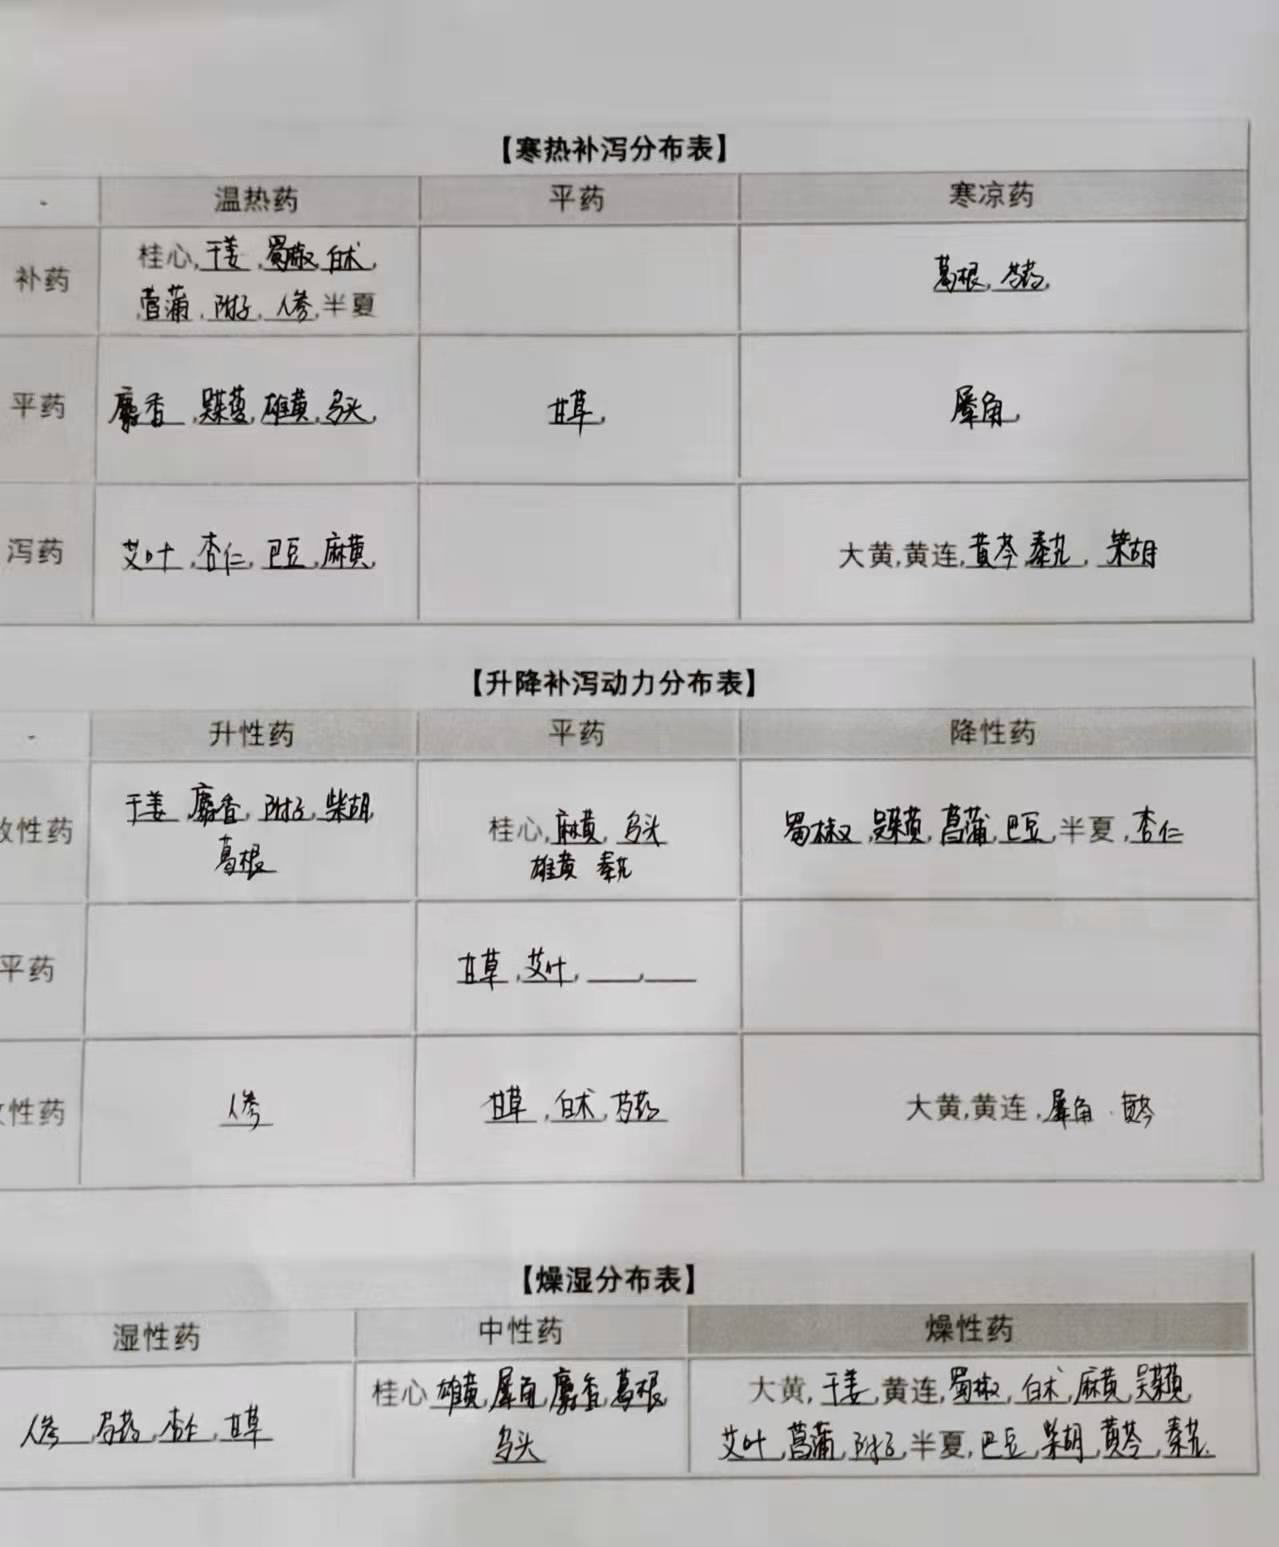 【寒热补泻分布表】
- 温热药 平药 寒凉药
补药 桂心,干姜,蜀椒,白术,
菖蒲,附子,人参,半夏
葛根,芍药,
平药 麝香,吴茱萸,雄黄,乌头, 甘草, 犀角,
泻药 艾叶,杏仁,巴豆,麻黄, 大黄,黄连,黄芩,秦艽,柴胡
【升降补泻动力分布表】
- 升性药 平药 降性药
散性药 干姜,麝香,附子,柴胡,
葛根
桂心,麻黄,乌头
雄黄 秦艽
蜀椒,吴茱萸,菖蒲,巴豆,半夏,杏仁
平药 甘草,艾叶,
性药 人参 甘草,白术,芍药 大黄,黄连,犀角.黄芩
【燥湿分布表】
湿性药 中性药 燥性药
人参,芍药,杏仁,甘草
桂心,雄黄,犀角,麝香,葛根,
乌头
大黄,干姜,黄连,蜀椒,白术,麻黄,吴茱萸,
艾叶,菖蒲,附子,半夏,巴豆,柴胡,黄芩,秦艽.